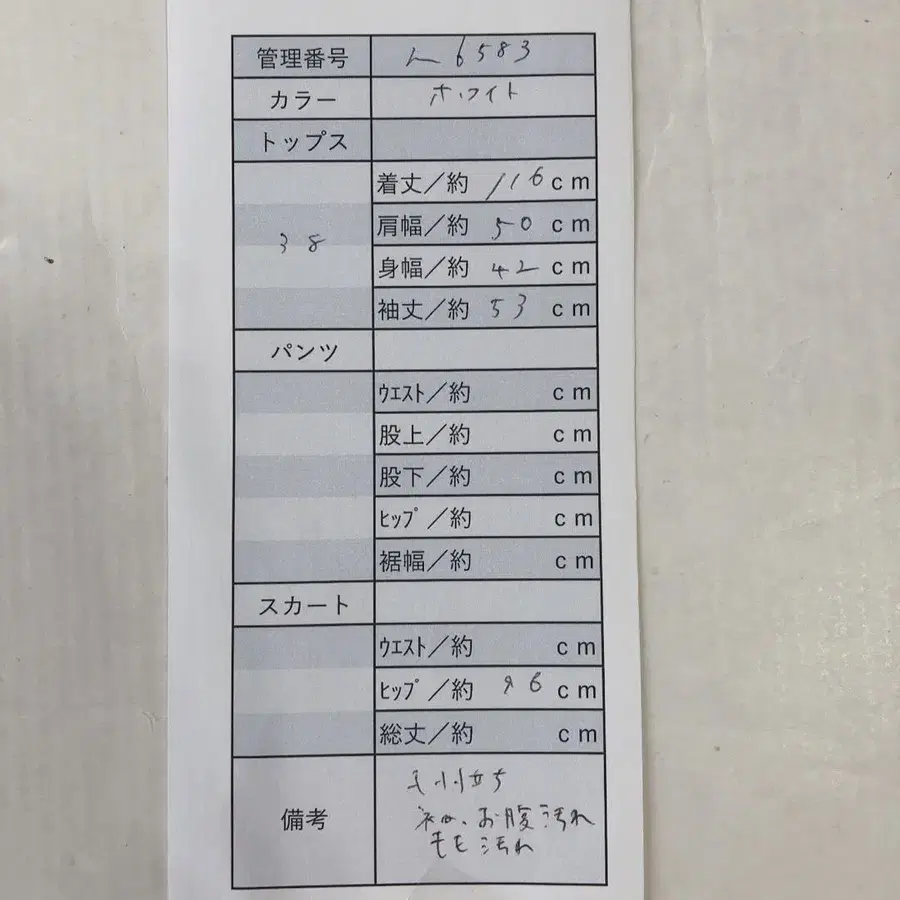 管理番号 L6583
カラー ホワイト
トップス
38
着丈／約 116 cm
肩幅／約 50 cm
身幅／約 42 cm
袖丈／約 53 cm
パンツ
ウエスト／約 cm
股上／約 cm
股下／約 cm
ヒップ／約 cm
裾幅／約 cm
スカート
ウエスト／約 cm
ヒップ／約 96 cm
総丈／約 cm
備考
毛羽立ち
袖、お腹汚れ
もも汚れ